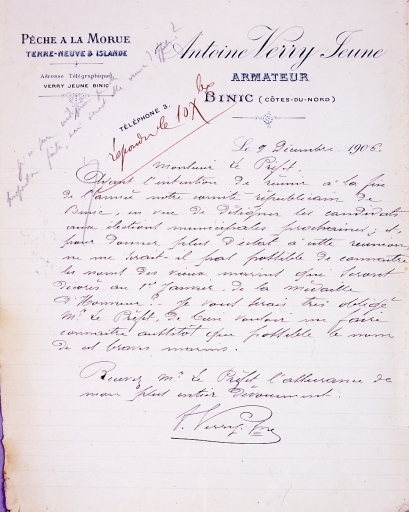 PÊCHE A LA MORUE
TERRE-NEUVE & ISLANDE
Adresse Télégraphique
VERRY JEUNE BINIC
Antoine Verry Jeune
ARMATEUR
BINIC (CÔTES-DU-NORD)
TÉLÉPHONE 3.
Répondu le 10 Xbre
Le 9 Décembre 1906.
Monsieur Le Préfet.
Ayant l'intention de réunir à la fin
de l'année notre comité républicain de
Binic, en vue de désigner les candidats
aux élections municipales prochaines; et
pour donner plus d'éclat à cette réunion
ne me serait-il pas possible de connaître
les noms des vieux marins qui seront
décorés au 1er Janvier, de la médaille
d'Honneur? Je vous serais très obligé
Mr Le Préfet, de bien vouloir me faire
connaître aussitôt que possible le nom
de ces braves marins.
Recevez Mr Le Préfet l'assurance de
mon plus entier dévouement.
A. Verry Jne